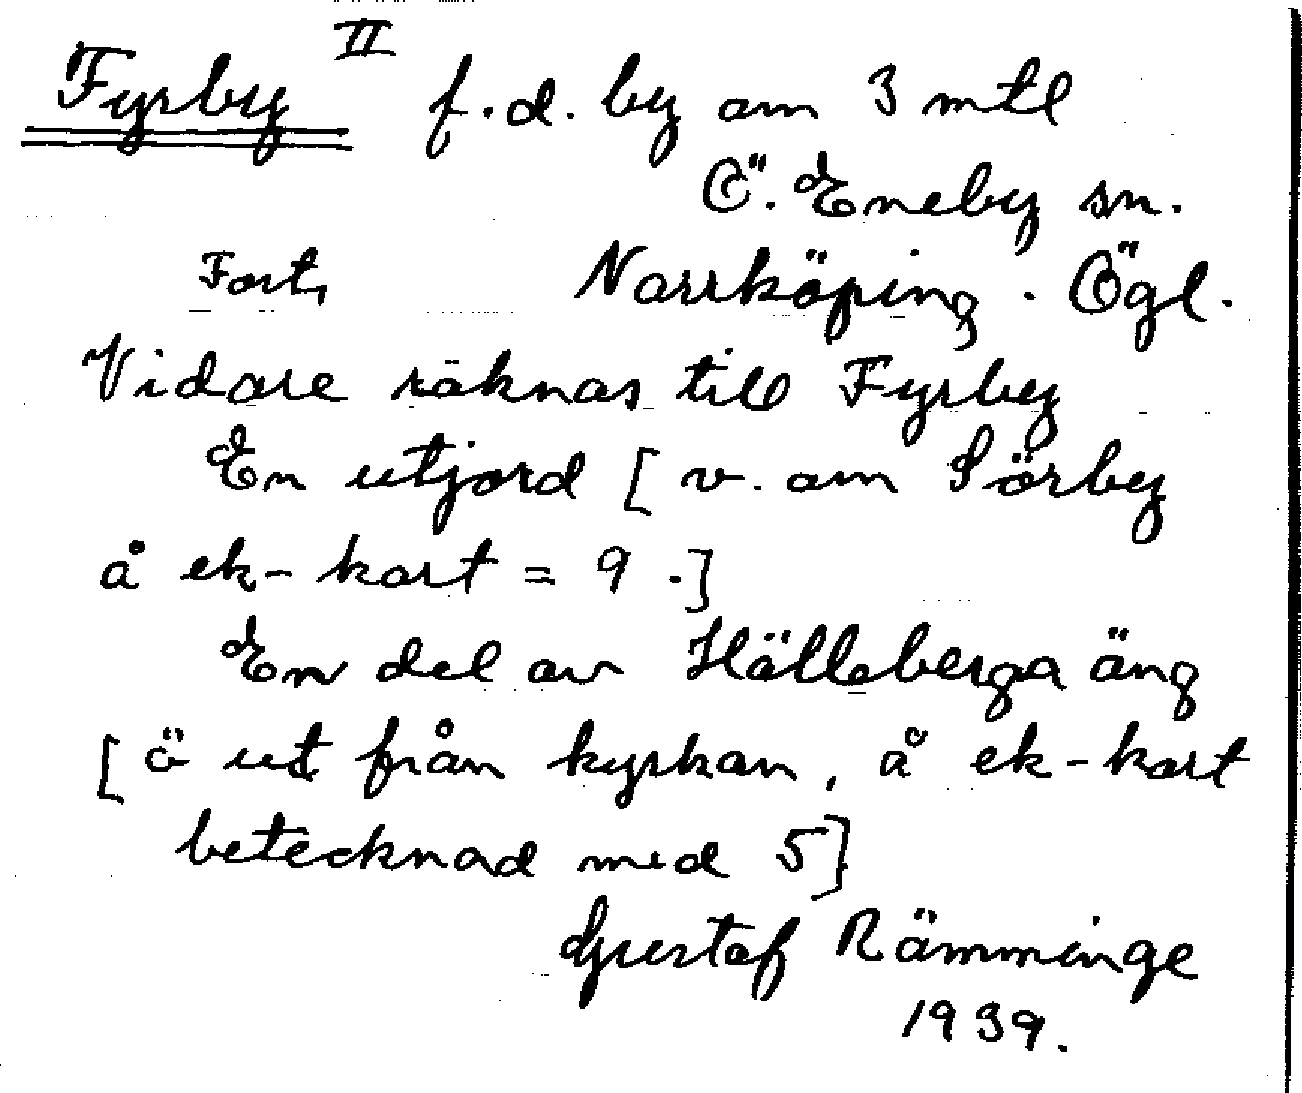 Fyrby II f.d. by om 3 mtl
Ö. Eneby sn.
Forts Norrköping. Ögl.
Vidare räknas till Fyrby
En utjord [ v. om Sörby
å ek-kart = 9 .]
En del av Hälleberga äng
[ ö ut från kyrkan, å ek-kart
betecknad med 5]
Gustaf Rämminge
1939.